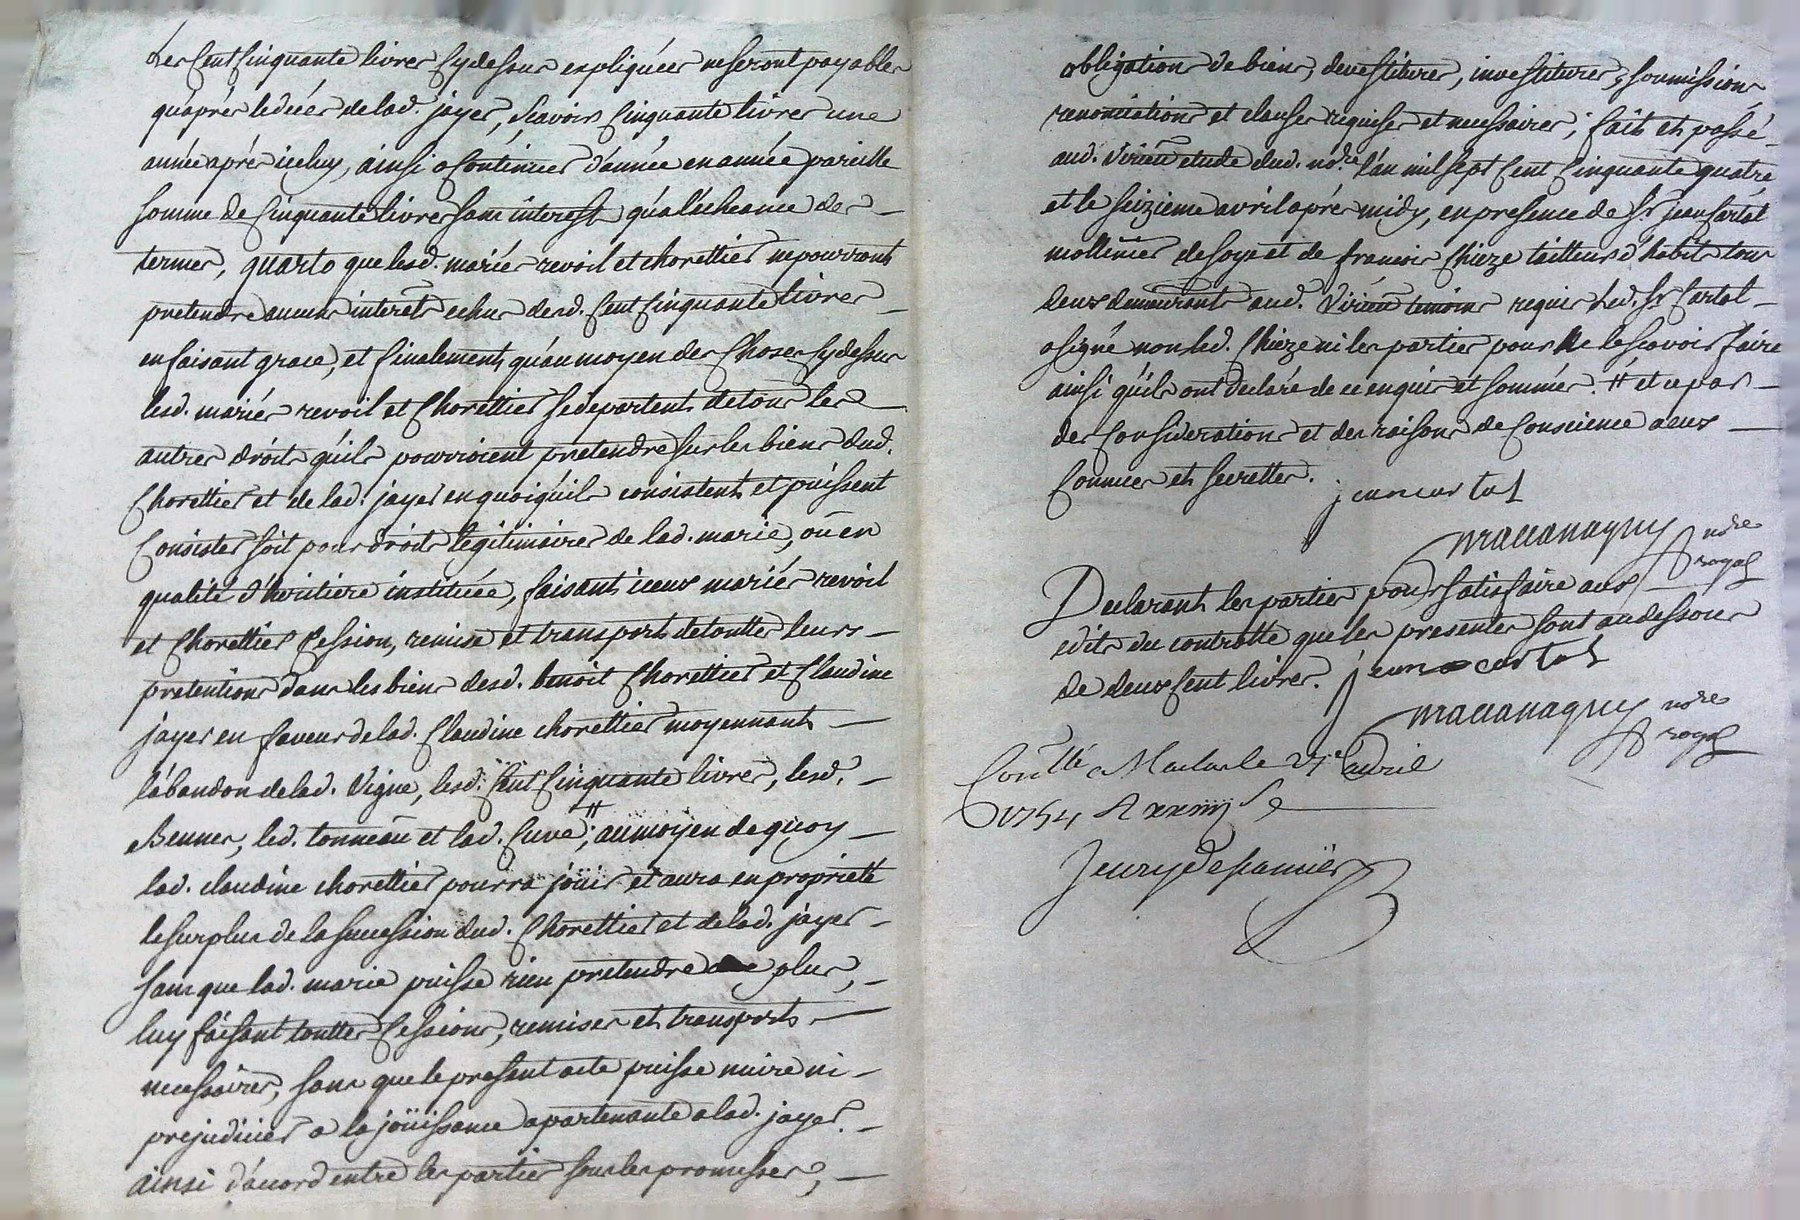 Les Cent Cinquante livres Cy dessus expliquées ne seront payables
qu'aprés le décés de lad. jayer, Scavoir Cinquante livres une
année aprés iceluy, ainsi a Continuer d'année en année pareille
somme de Cinquante livres sans interest qu'a l'écheance des
termes, quarto que lesd. mariés revoil et chorettier ne pourront
pretendre aucuns interets echus desd. Cent Cinquante livres
en faisant grace, et finalement, qu'au moyen des Choses Cy dessus
lesd. mariés revoil et Chorettier se departent de tous les
autres droits qu'ils pourroient pretendre sur les biens dud.
Chorettier et de lad. jayer en quoiqu'ils consistent et puissent
Consister soit pour droits légitimaires de lad. marie, ou en
qualité d'heritiere instituée, faisant iceux mariés revoil
et Chorettier Cession, remise et transport de toutter leurs
pretentions dans les biens desd. benoit Chorettier et Claudine
jayer en faveur de lad. Claudine chorettier moyennant
l'abandon de lad. Vigne, lesd. Cent Cinquante livres, lesd.
Bennes, led. tonneau et lad. Cuve; # au moyen de quoy
lad. claudine chorettier pourra joüir et aura en proprieté
le surplus de la succession dud. Chorettier et de lad. jayer
sans que lad. marie puisse rien pretendre de plus,
luy faisant touttes Cessions, remises et transports
necessaires, sans que le present acte puisse nuire ni
prejudicier a la joüissance apartenante a lad. jayer.
ainsi d'accord entre les parties sous les promesses,
obligations de biens, devestitures, investitures, soumissions
renonciations et clauses requises et necessaires; fait et passé
aud. Virieu etude dud. nore l'an mil sept Cent Cinquante quatre
et le seizieme avril aprés midy, en presence de Sr jean Cartal
mollinier de soye et de francois Chieze tailleur d'habits tous
deux demeurants aud. Virieu temoins requis led. Sr Cartal
a signé non led. Chieze ni les parties pour ne le scavoir faire
ainsi qu'ils ont declaré de ce enquis et sommés. # et ce par
des Considerations et des raisons de Conscience a eux
Connues et secrettes. jean cartal
nore
royal
Declarant les parties pour satisfaire aux
edits du controlle que les presentes sont audessous
de deux Cent livres. jean cartal
nore
royal
Conllé a le avril
1754 R